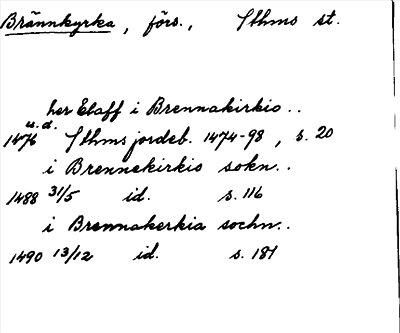 Brännkyrka, förs., Sthms st.
her Elaff i Brennakirkio..
u.d.
1476 Sthms jordeb. 1474-98, s. 20
i Brennekirkio sokn..
1488 31/5 id. s. 116
i Brennakerkia sochn..
1490 13/12 id. s. 181